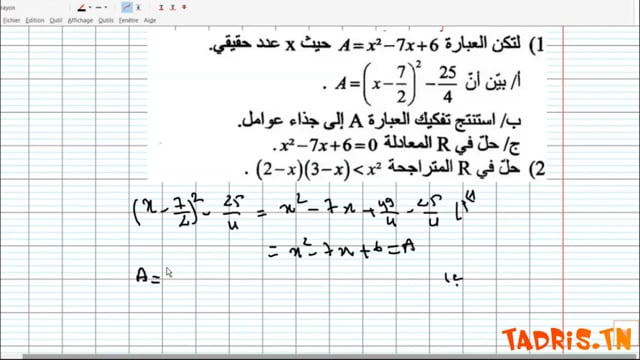 rayon
Fichier Edition Outil Affichage Outils Documents Aide
1) لتكن العبارة A=x²−7x+6 حيث x عدد حقيقي.
أ/ بيّن أنّ A=(x−7/2)²−25/4 .
ب/ استنتج تفكيك العبارة A إلى جذاء عوامل.
ج/ حلّ في R المعادلة x²−7x+6=0 .
2) حلّ في R المتراجحة (2−x)(3−x)<x² .
(x−7/2)²−25/4 = x²−7x+49/4−25/4
= x²−7x+6=A
A=
TADRIS.TN